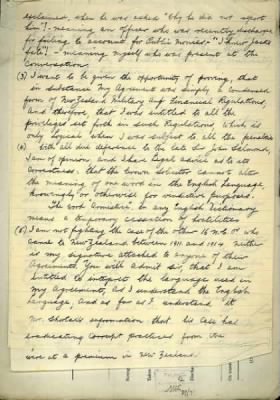 exclaimed, when he was asked "Why he did not report
him", meaning an officer who was recently discharged
for failing to account for Public Monies - "I knew
fate," - meaning myself who was present at the
Conversation.
(3) I want to be given the opportunity of proving, that
in substance my Agreement was simply a condensed
form of New Zealand Military and Financial Regulations,
and therefore, that I was entitled to all the
privileges set forth in such Regulations which is
only logical when I was subject to all the penalties
(4) With all due deference to the late Sir John Salmond,
I am of opinion, and I have legal advice as to its
correctness: that the Crown Solicitor cannot alter
the meaning of one word in the English language,
knowingly or otherwise for vindictive purposes.
The word Armistice in any English Dictionary
means a temporary cessation of hostilities
(5) I am not fighting the case of the other 16 who
came to New Zealand between 1911 and 1914. Neither
is my signature attached to anyone of their
Agreements. You will admit Sir, that I am
entitled to interpret the language used in
my Agreement, as I understand the English
language. And as far as I understand it
Mr. information that his case had
eradicating corrupt practices from the
were at a premium in New Zealand.